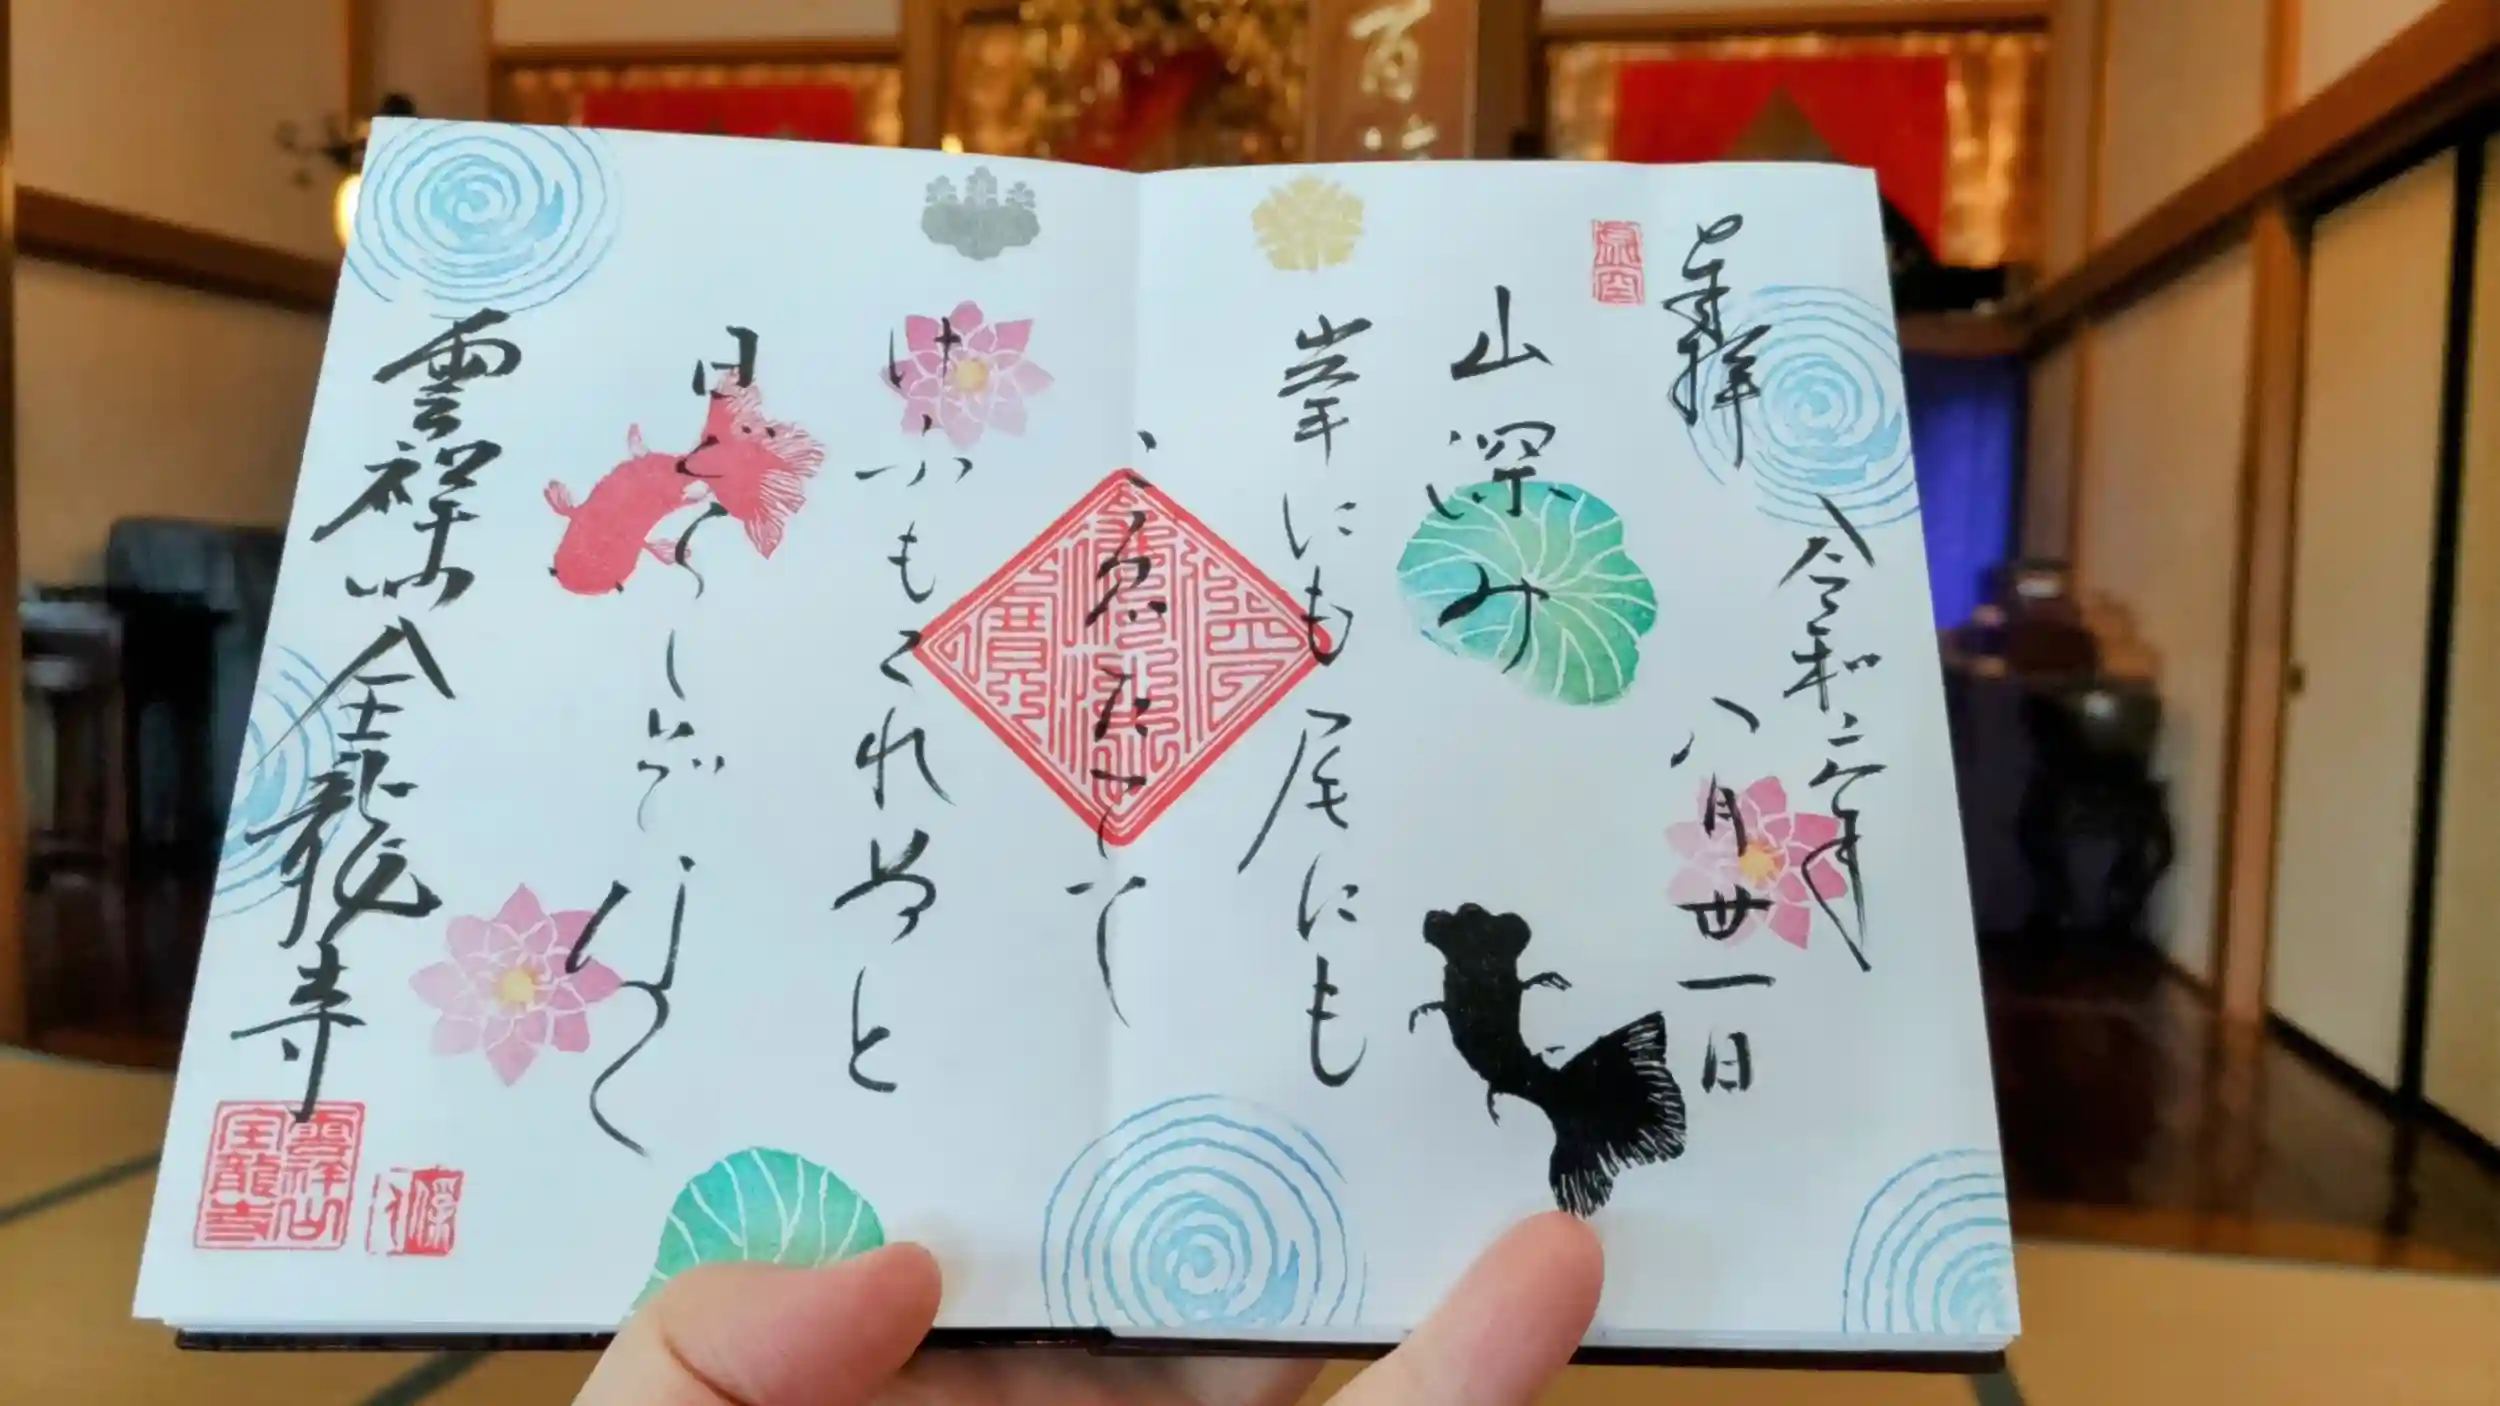 奉拝
令和二年
八月廿一日
山深み
峯にも尾にも
こゑたてて
けふもくれぬと
日ぐらしぞなく
雲祥山金龍寺
雲祥山
金龍寺